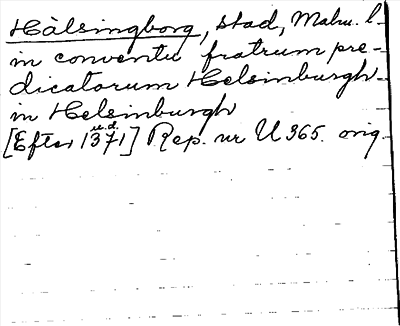 Hälsingborg, stad, Malm. l.
in conventu fratrum pre-
dicatorum Helsinburgh-
in Helsinburgh
u.d.
[Efter 1371] Rep. nr U 365. orig.